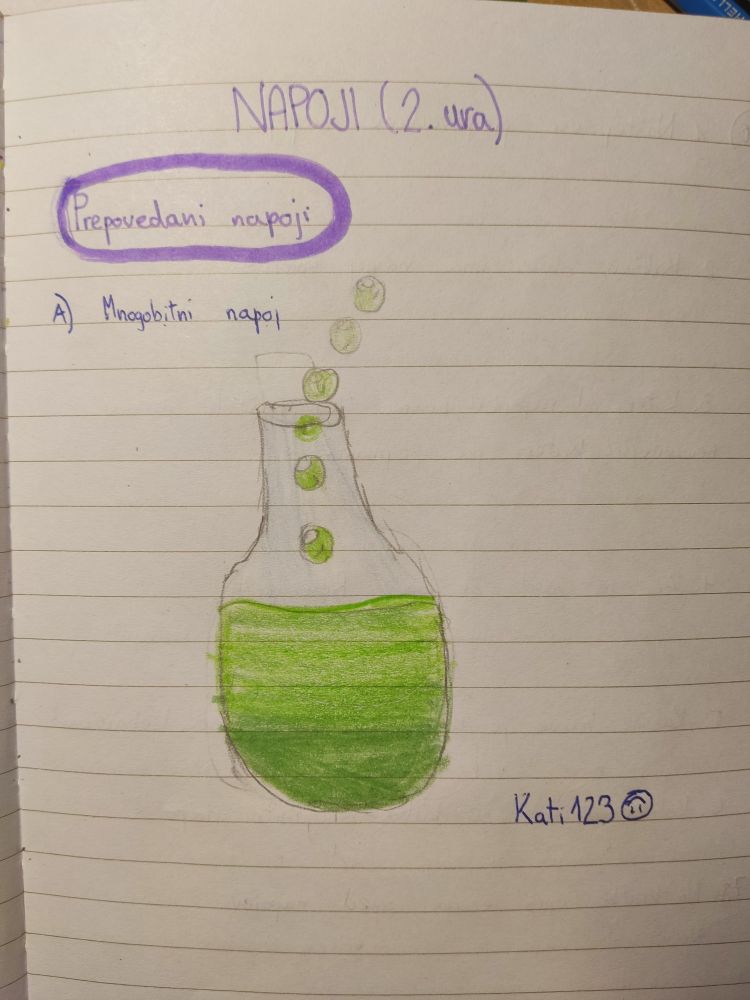 NAPOJI (2. ura)
Prepovedani napoji
A) Mnogobitni napoj
Kati123